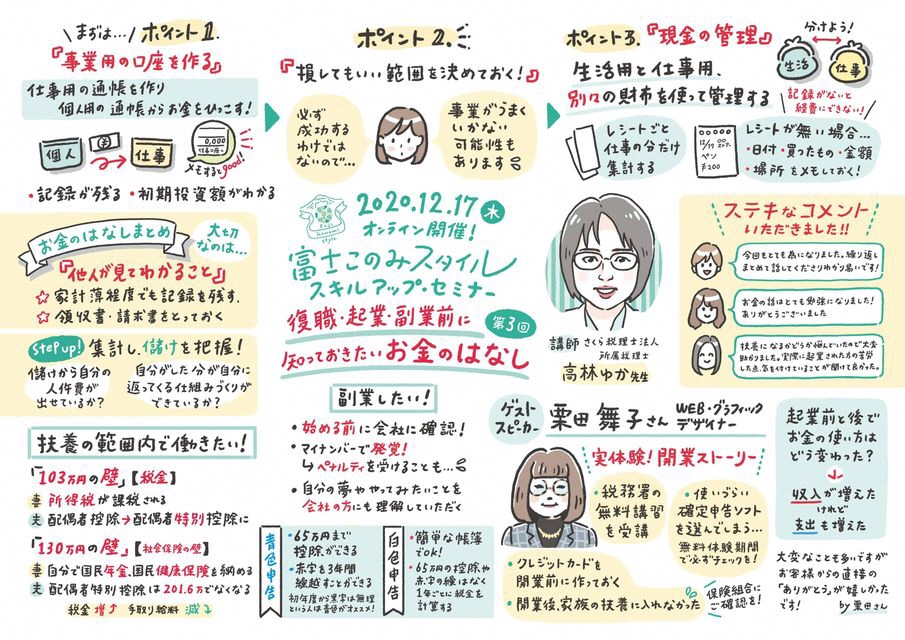 まずは…
ポイント1.
『事業用の口座を作る』
仕事用の通帳を作り
個人用の通帳からお金をひっこす!
個人
仕事
0,000
メモするとgood!
・記録が残る ・初期投資額がわかる
お金のはなしまとめ
大切なのは…
『他人が見てわかること』
☆家計簿程度でも記録を残す.
☆領収書・請求書をとっておく
Step up! 集計し、儲けを把握!
儲けから自分の
人件費が
出せているか?
自分がした分が自分に
返ってくる仕組みづくりが
できているか?
扶養の範囲内で働きたい!
「103万円の壁」【税金】
妻 所得税が課税される
夫 配偶者控除→配偶者特別控除に
「130万円の壁」【社会保険の壁】
妻 自分で国民年金、国民健康保険を納める
夫 配偶者特別控除は201.6万でなくなる
税金増↑ 手取り給料減↓
ポイント2.
『損してもいい範囲を決めておく!』
必ず
成功する
わけでは
ないので…
事業がうまく
いかない
可能性も
あります
Fuji
konomi
style
2020.12.17 木
オンライン開催!
富士このみスタイル
スキルアップ・セミナー
第3回
復職・起業・副業前に
知っておきたいお金のはなし
副業したい!
・始める前に会社に確認!
・マイナンバーで発覚!
↳ペナルティを受けることも…
・自分の夢ややってみたいことを
会社の方にも理解していただく
青色申告
・65万円まで
控除ができる
・赤字を3年間
繰越すことができる
初年度から黒字は無理
という人は青色がオススメ!
白色申告
・簡単な帳簿
でOK!
・65万円の控除や
赤字の繰はなく
1年ごとに税金を
計算する
ポイント3.『現金の管理』
生活用と仕事用、
別々の財布を使って管理する
分けよう!
生活
仕事
記録がないと
経費にできない!
レシートごと
仕事の分だけ
集計する
12/17
ペン
¥200
レシートが無い場合…
・日付・買ったもの・金額
・場所をメモしておく!
講師 さくら税理士法人
所属税理士
高林ゆか先生
ステキなコメント
いただきました!!
今回もとても為になりました。繰り返し
まとめて話してくださりわかり易いです!
お金の話はとても勉強になりました!
ありがとうございました
扶養になるかどうか悩んでいたので大変
助かりました。実際に起業された方の苦労
した点、気を付けていることが聞けて良かった。
ゲスト
スピーカー
栗田 舞子さん
WEB・グラフィック
デザイナー
実体験!開業ストーリー
・税務署の
無料講習
を受講
・使いづらい
確定申告ソフト
を選んでしまう…
無料体験期間
で必ずチェックを!
・クレジットカードを
開業前に作っておく
・開業後、家族の扶養に入れなかった
保険組合に
ご確認を!
起業前と後で
お金の使い方は
どう変わった?
↓
収入が増えた
けれど
支出も増えた
大変なことも多いですが
お客様からの直接の
「ありがとう」が嬉しかった
です!
by 栗田さん